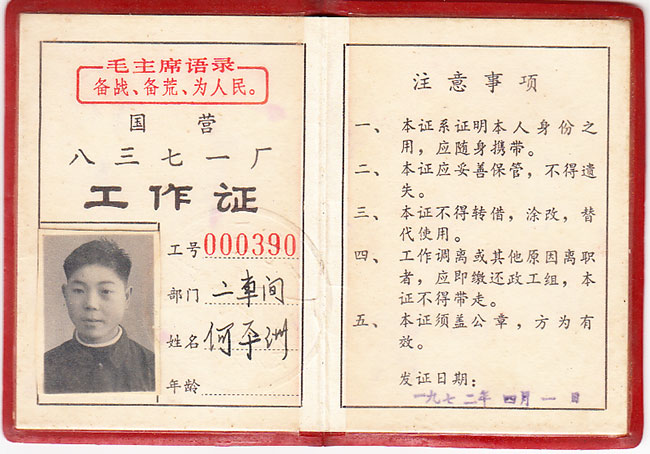 毛主席语录
备战、备荒、为人民。
国营
八三七一厂
工作证
工号 000390
部门 二车间
姓名 何平洲
年龄
注意事项
一、本证系证明本人身份之
用，应随身携带。
二、本证应妥善保管，不得遗
失。
三、本证不得转借，涂改，替
代使用。
四、工作调离或其他原因离职
者，应即缴还政工组，本
证不得带走。
五、本证须盖公章，方为有
效。
发证日期：
一九七二年 四月 一 日